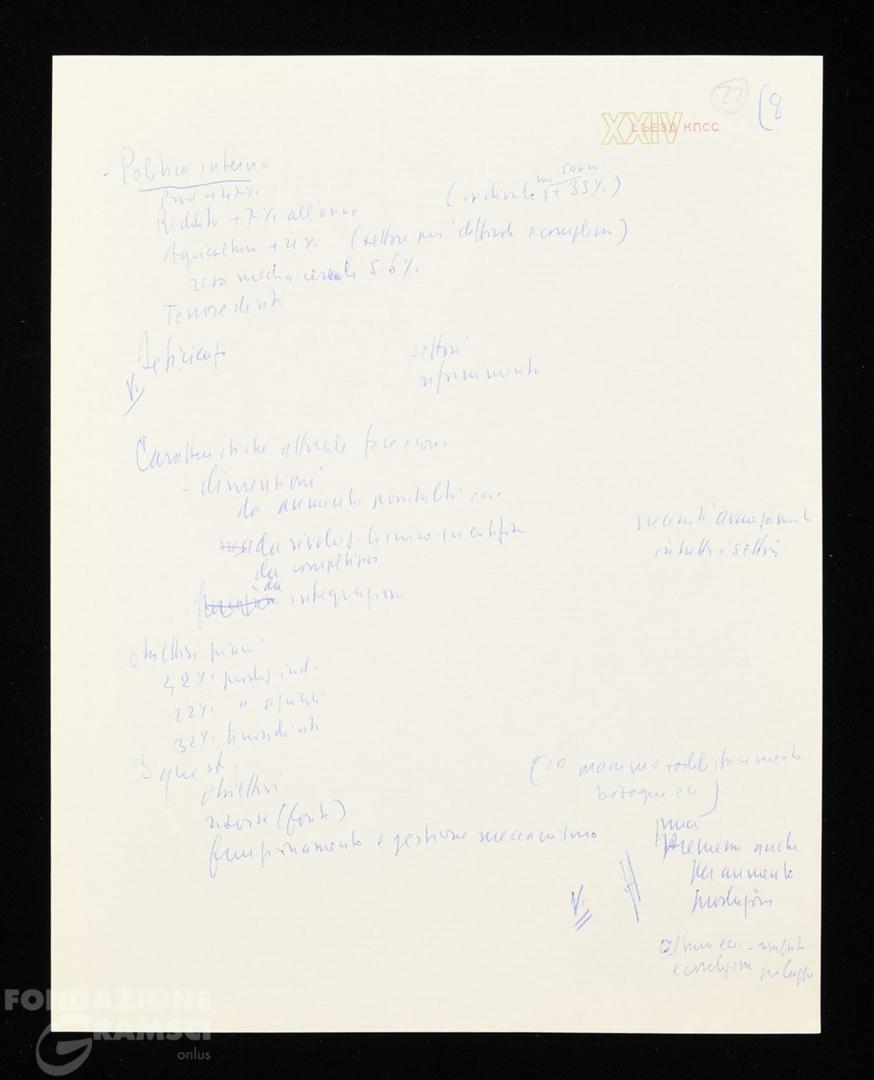 27
(8
XXIV СЪЕЗД КПСС
- Politica interna
Prod +47%
Reddito +7% all'anno
(+33%)
Agricoltura +21% (settore più
resa media cereali 5.6%
Tenore di vita
Deficienze
V.
settori
rifornimento
Caratteristiche attuale fase econ.
- dimensioni
da aumento possibilità ec.
da rivoluz. tecnico-scientifica
da competizione
da integrazione
necessità avanzamento
in tutti i settori
Obiettivi piani
42% produz. ind.
22% "
32% tenore di vita
3 quest.
obiettivi
risorse (fonti)
funzionamento e gestione meccanismo
massimo soddisfacimento
bisogni ecc)
prima
premessa anche
per aumento
produzione
V.
e condizione sviluppo
FONDAZIONE
GRAMSCI
onlus